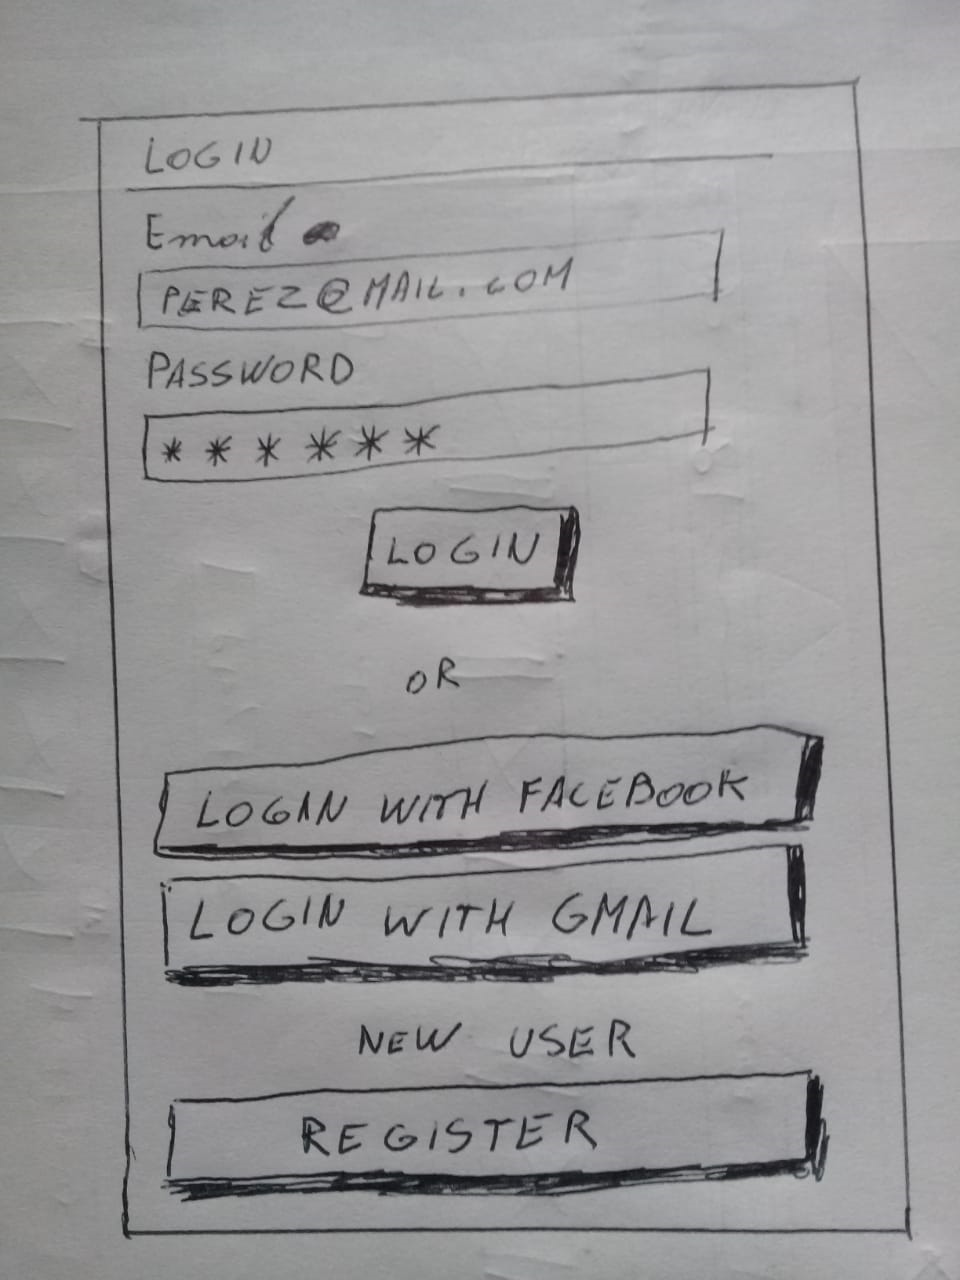 LOGIN
Email
PEREZ@MAIL.COM
PASSWORD
* * * * * *
LOGIN
OR
LOGIN WITH FACEBOOK
LOGIN WITH GMAIL
NEW USER
REGISTER